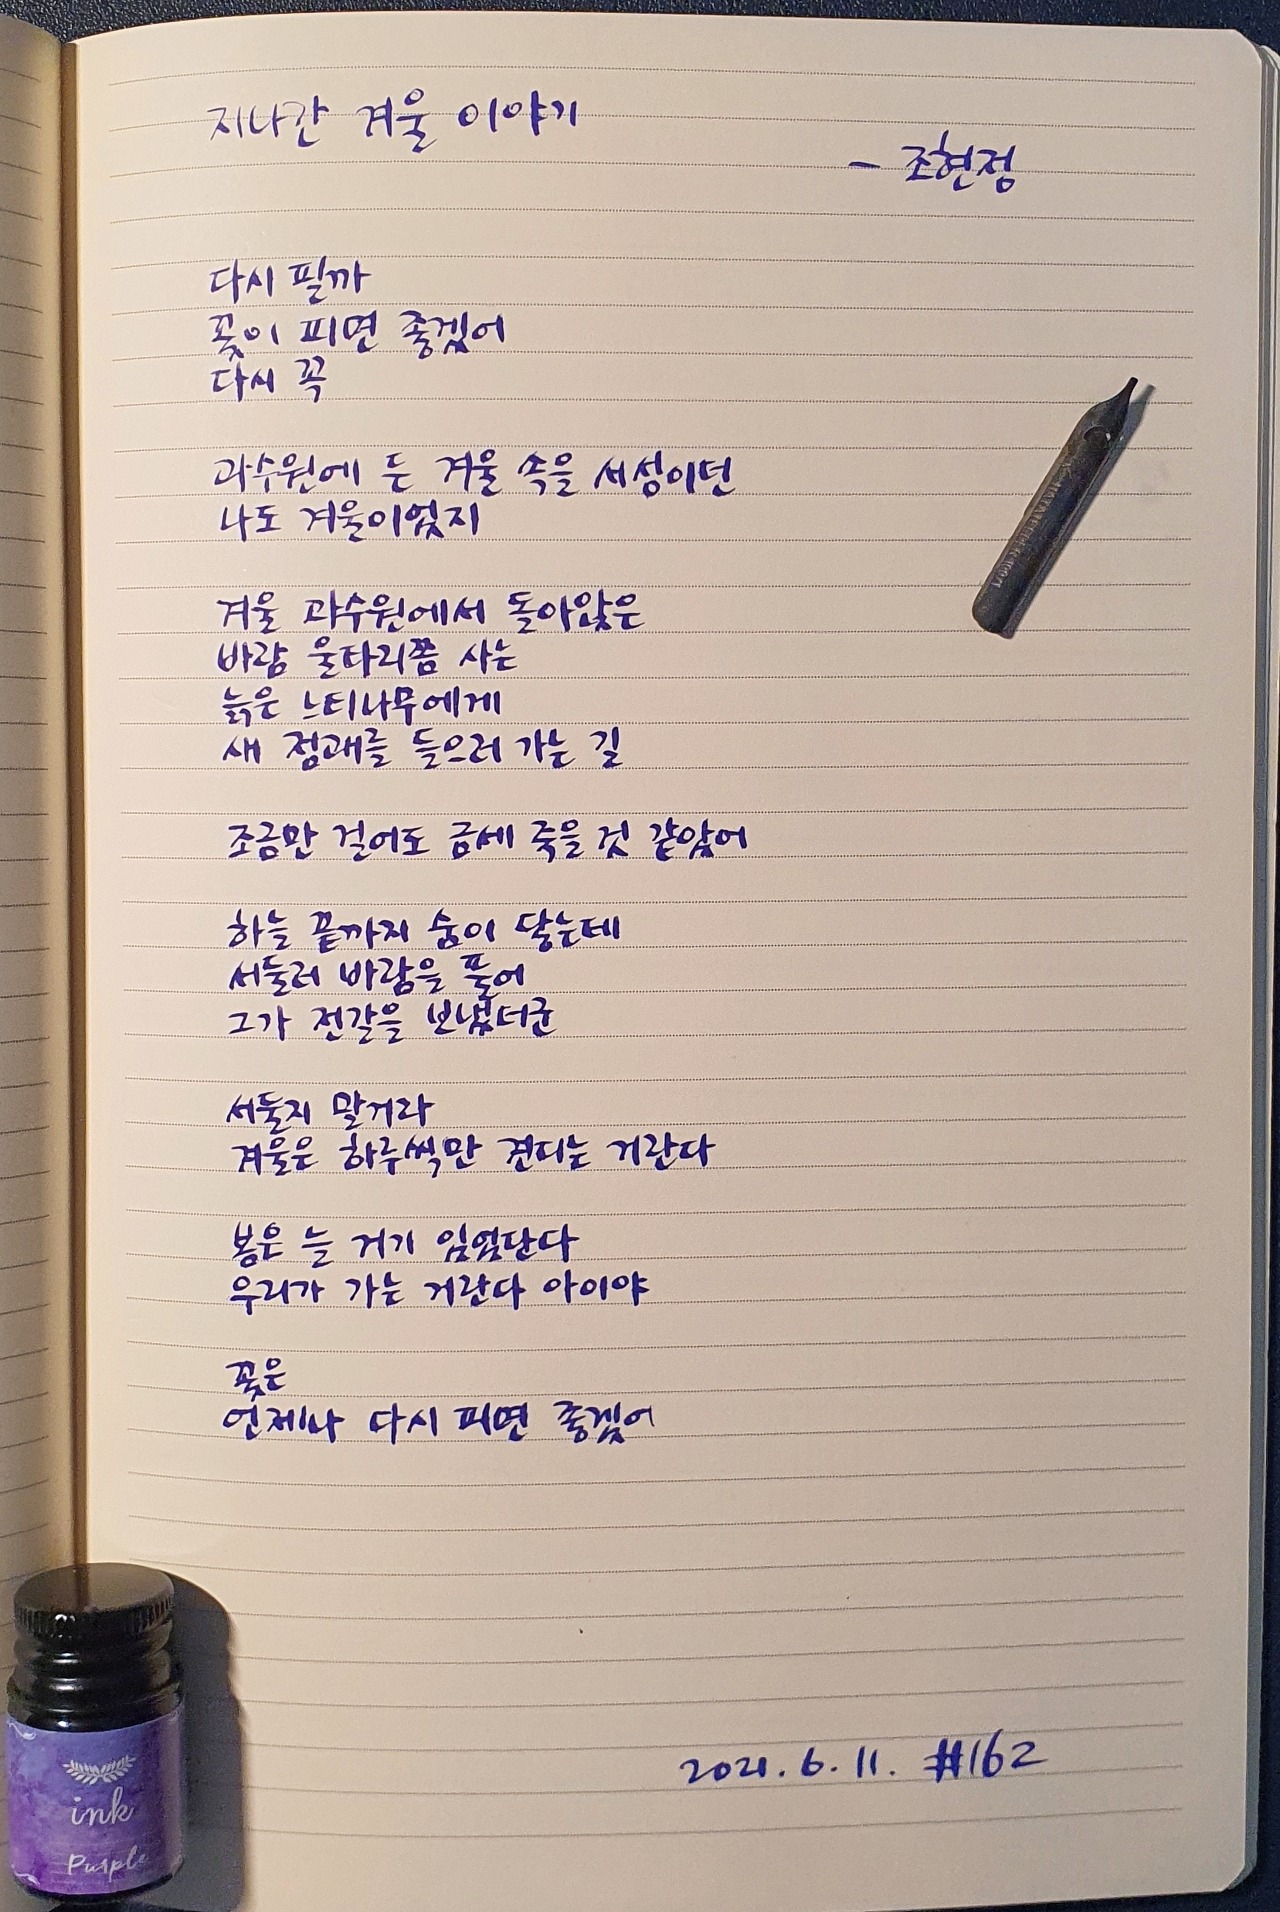 지나간 겨울 이야기
- 조현정
다시 필까
꽃이 피면 좋겠어
다시 꼭
과수원에 든 겨울 속을 서성이던
나도 겨울이었지
겨울 과수원에서 돌아앉은
바람 울타리쯤 사는
늙은 느티나무에게
새 점괘를 들으러 가는 길
조금만 걸어도 금세 죽을 것 같았어
하늘 끝까지 숨이 닿는데
서둘러 바람을 풀어
그가 전갈을 보냈더군
서둘지 말거라
겨울은 하루씩만 견디는 거란다
봄은 늘 거기 있었단다
우리가 가는 거란다 아이야
꽃은
언제나 다시 피면 좋겠어
2021. 6. 11. #162
ink
Purple